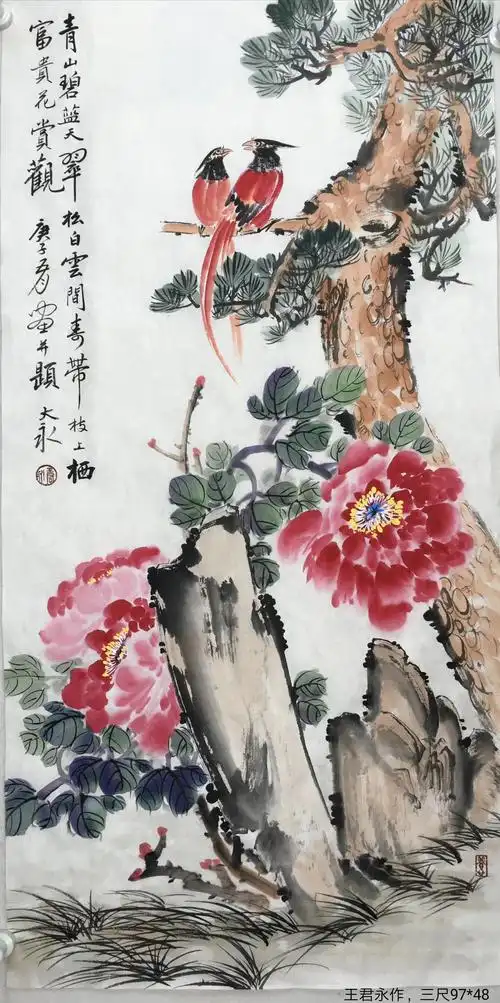 青山碧蓝天翠松白雲間寿带枝上栖
富貴花賞觀 庚子春月畫并題 大永
王君永作，三尺97*48